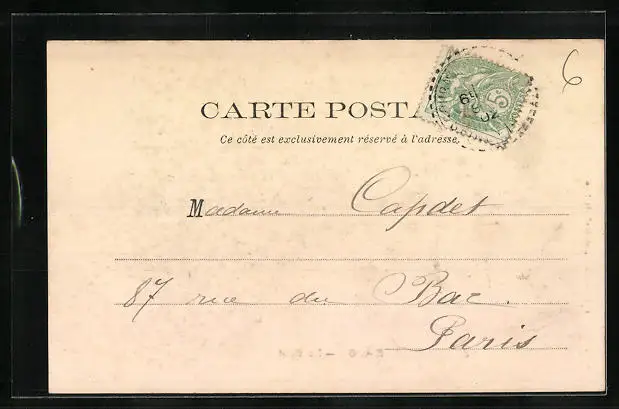 6
CARTE POSTA
Ce côté est exclusivement réservé à l'adresse.
5
Madame Capdet
87 rue du Bac.
Paris